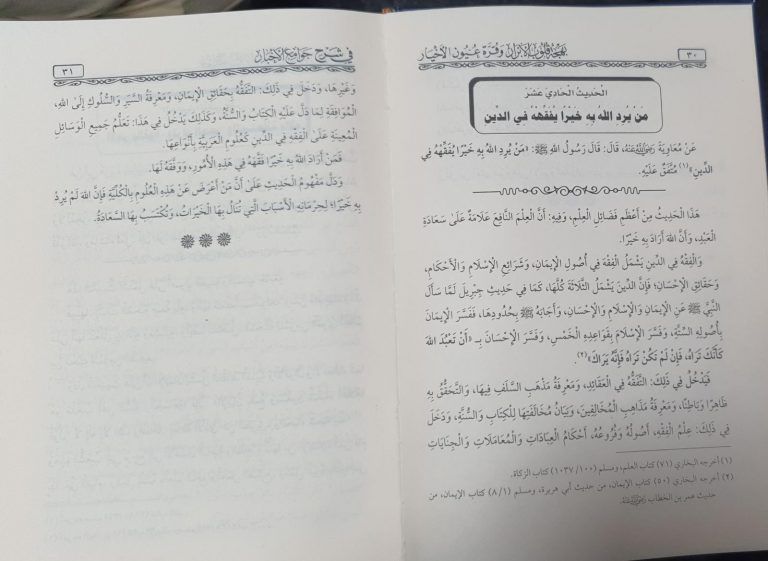 ٣٠
بهجة قلوب الأبرار وقرة عيون الأخيار
الحَدِيثُ الحَادِي عَشَرَ
مَنْ يُرِدِ اللهُ بِهِ خَيْرًا يُفَقِّهْهُ فِي الدِّينِ
عَنْ مُعَاوِيَةَ رَضِيَ اللَّهُ عَنْهُ، قَالَ: قَالَ رَسُولُ اللهِ ﷺ: «مَنْ يُرِدِ اللهُ بِهِ خَيْرًا يُفَقِّهْهُ فِي
الدِّينِ»(١) مُتَّفَقٌ عَلَيْهِ.
هَذَا الْحَدِيثُ مِنْ أَعْظَمِ فَضَائِلِ الْعِلْمِ، وَفِيهِ: أَنَّ الْعِلْمَ النَّافِعَ عَلَامَةٌ عَلَى سَعَادَةِ
الْعَبْدِ، وَأَنَّ اللهَ أَرَادَ بِهِ خَيْرًا.
وَالْفِقْهُ فِي الدِّينِ يَشْمَلُ الْفِقْهَ فِي أُصُولِ الْإِيمَانِ، وَشَرَائِعِ الْإِسْلَامِ وَالْأَحْكَامِ،
وَحَقَائِقِ الْإِحْسَانِ؛ فَإِنَّ الدِّينَ يَشْمَلُ الثَّلَاثَةَ كُلَّهَا، كَمَا فِي حَدِيثِ جِبْرِيلَ لَمَّا سَأَلَ
النَّبِيَّ ﷺ عَنِ الْإِيمَانِ وَالْإِسْلَامِ وَالْإِحْسَانِ، وَأَجَابَهُ ﷺ بِحُدُودِهَا، فَفَسَّرَ الْإِيمَانَ
بِأُصُولِهِ السِّتَّةِ، وَفَسَّرَ الْإِسْلَامَ بِقَوَاعِدِهِ الْخَمْسِ، وَفَسَّرَ الْإِحْسَانَ بِـ «أَنْ تَعْبُدَ اللهَ
كَأَنَّكَ تَرَاهُ، فَإِنْ لَمْ تَكُنْ تَرَاهُ فَإِنَّهُ يَرَاكَ»(٢).
فَيَدْخُلُ فِي ذَلِكَ: التَّفَقُّهُ فِي الْعَقَائِدِ، وَمَعْرِفَةُ مَذْهَبِ السَّلَفِ فِيهَا، وَالتَّحَقُّقُ بِهِ
ظَاهِرًا وَبَاطِنًا، وَمَعْرِفَةُ مَذَاهِبِ الْمُخَالِفِينَ، وَبَيَانُ مُخَالَفَتِهَا لِلْكِتَابِ وَالسُّنَّةِ، وَدَخَلَ
فِي ذَلِكَ: عِلْمُ الْفِقْهِ، أُصُولُهُ وَفُرُوعُهُ، أَحْكَامُ الْعِبَادَاتِ وَالْمُعَامَلَاتِ وَالْجِنَايَاتِ
(١) أخرجه البخاري (٧١) كتاب العلم، ومسلم (١٠٠/ ١٠٣٧) كتاب الزكاة.
(٢) أخرجه البخاري (٥٠) كتاب الإيمان، من حديث أبي هريرة، ومسلم (٨/١) كتاب الإيمان، من
حديث عمر بن الخطاب رَضِيَ اللَّهُ عَنْهُ.
في شرح جوامع الأخبار
٣١
وَغَيْرِهَا، وَدَخَلَ فِي ذَلِكَ: التَّفَقُّهُ بِحَقَائِقِ الْإِيمَانِ، وَمَعْرِفَةُ السَّيْرِ وَالسُّلُوكِ إِلَى اللهِ،
الْمُوَافِقَةِ لِمَا دَلَّ عَلَيْهِ الْكِتَابُ وَالسُّنَّةُ، وَكَذَلِكَ يَدْخُلُ فِي هَذَا: تَعَلُّمُ جَمِيعِ الْوَسَائِلِ
الْمُعِينَةِ عَلَى الْفِقْهِ فِي الدِّينِ كَعُلُومِ الْعَرَبِيَّةِ بِأَنْوَاعِهَا.
فَمَنْ أَرَادَ اللهُ بِهِ خَيْرًا فَقَّهَهُ فِي هَذِهِ الْأُمُورِ، وَوَفَّقَهُ لَهَا.
وَدَلَّ مَفْهُومُ الْحَدِيثِ عَلَى أَنَّ مَنْ أَعْرَضَ عَنْ هَذِهِ الْعُلُومِ بِالْكُلِّيَّةِ فَإِنَّ اللهَ لَمْ يُرِدْ
بِهِ خَيْرًا؛ لِحِرْمَانِهِ الْأَسْبَابَ الَّتِي تُنَالُ بِهَا الْخَيْرَاتُ، وَتُكْتَسَبُ بِهَا السَّعَادَةُ.